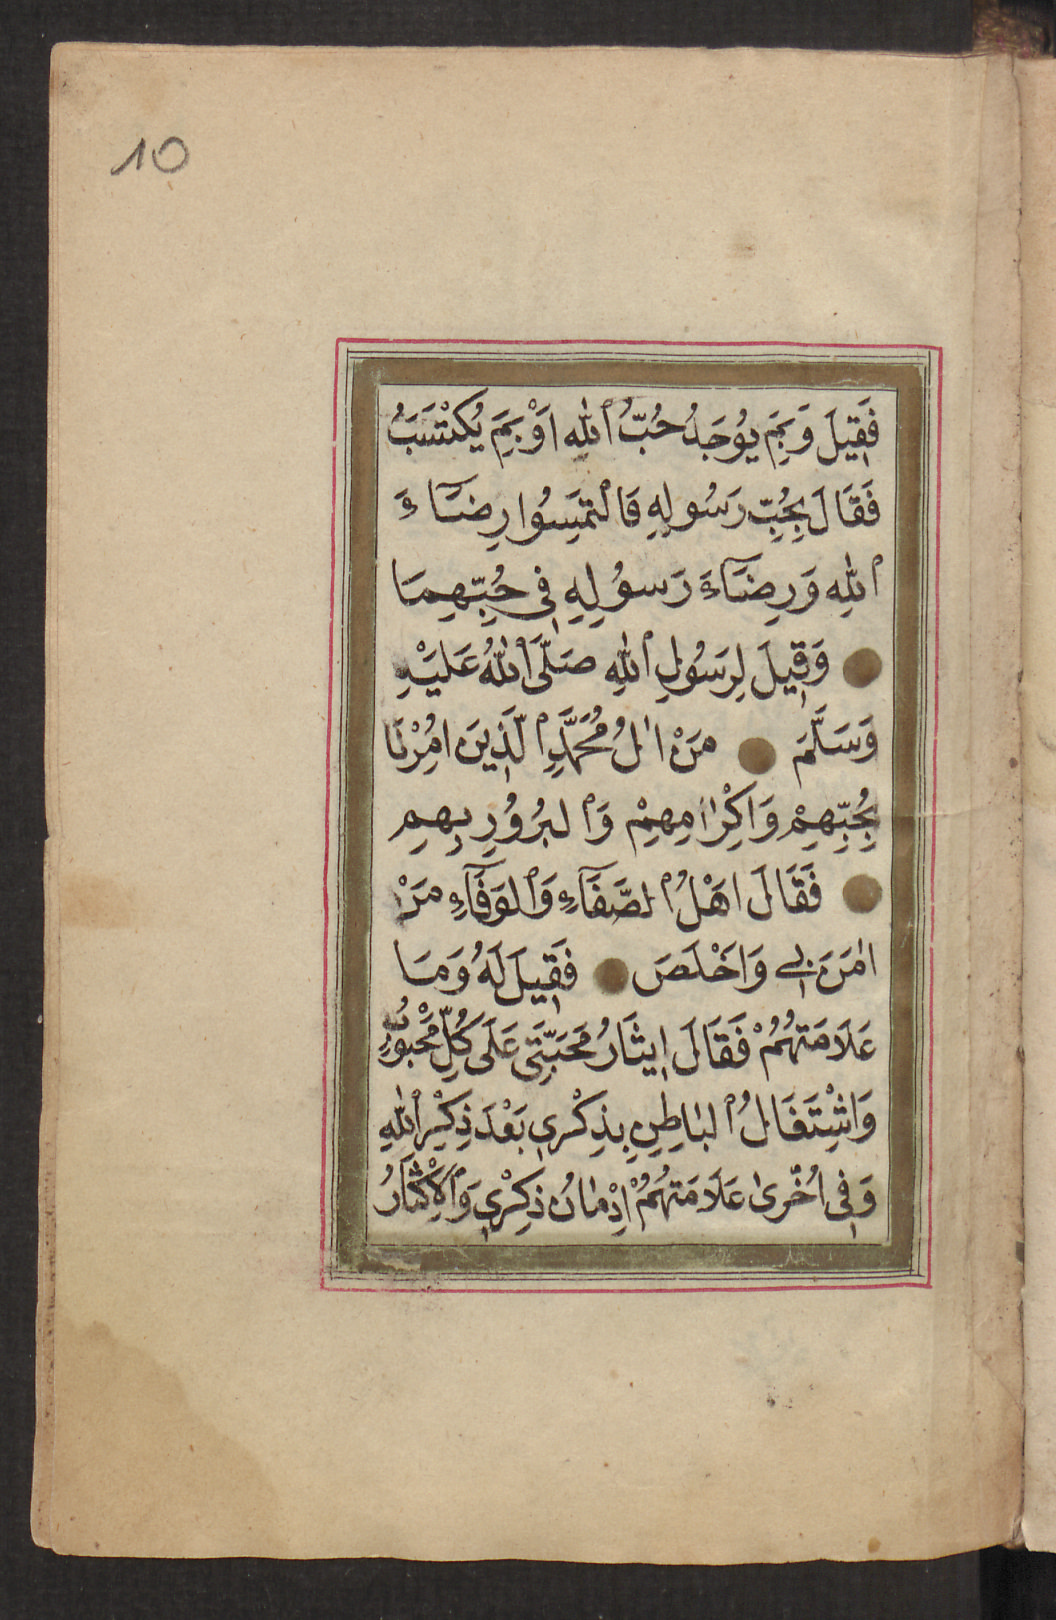 10
فَقِيلَ وَبِمَ يُوجَدُ حُبُّ ٱللهِ اَوْ بِمَ يُكْتَسَبُ
فَقَالَ بِحُبِّ رَسُولِهِ فَالْتَمِسُوا رِضَآءَ
ٱللهِ وَرِضَآءَ رَسُولِهِ فِى حُبِّهِمَا
وَقِيلَ لِرَسُولِ ٱللهِ صَلَّى ٱللهُ عَلَيْهِ
وَسَلَّمَ مَنْ اٰلُ مُحَمَّدٍ ٱلَّذِينَ اُمِرْنَا
بِحُبِّهِمْ وَاِكْرَامِهِمْ وَٱلْبُرُورِ بِهِمْ
فَقَالَ اَهْلُ ٱلصَّفَآءِ وَٱلْوَفَآءِ مَنْ
اٰمَنَ بِى وَاَخْلَصَ فَقِيلَ لَهُ وَمَا
عَلَامَتُهُمْ فَقَالَ اِيثَارُ مَحَبَّتِى عَلَى كُلِّ مَحْبُوبٍ
وَاشْتِغَالُ ٱلْبَاطِنِ بِذِكْرِى بَعْدَ ذِكْرِ ٱللهِ
وَفِى اُخْرٰى عَلَامَتُهُمْ اِدْمَانُ ذِكْرِى وَٱلْاِكْثَارُ